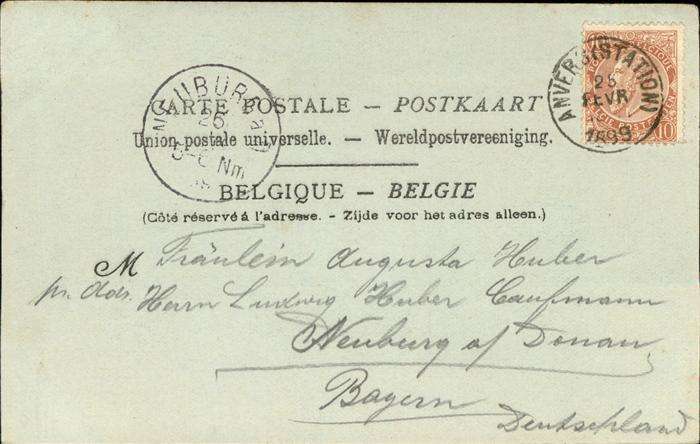 CARTE POSTALE — POSTKAART
Union postale universelle. — Wereldpostvereeniging.
BELGIQUE — BELGIE
(Côté réservé á l'adresse. - Zijde voor het adres alleen.)
M Fräulein Augusta Huber
pr. Adr. Herrn Ludwig Huber Caufmann
Neuburg a/ Donau
Bayern
Deutschland
ANVERS (STATION)
25
FEVR
1899
10
NEUBURG
26
Nm